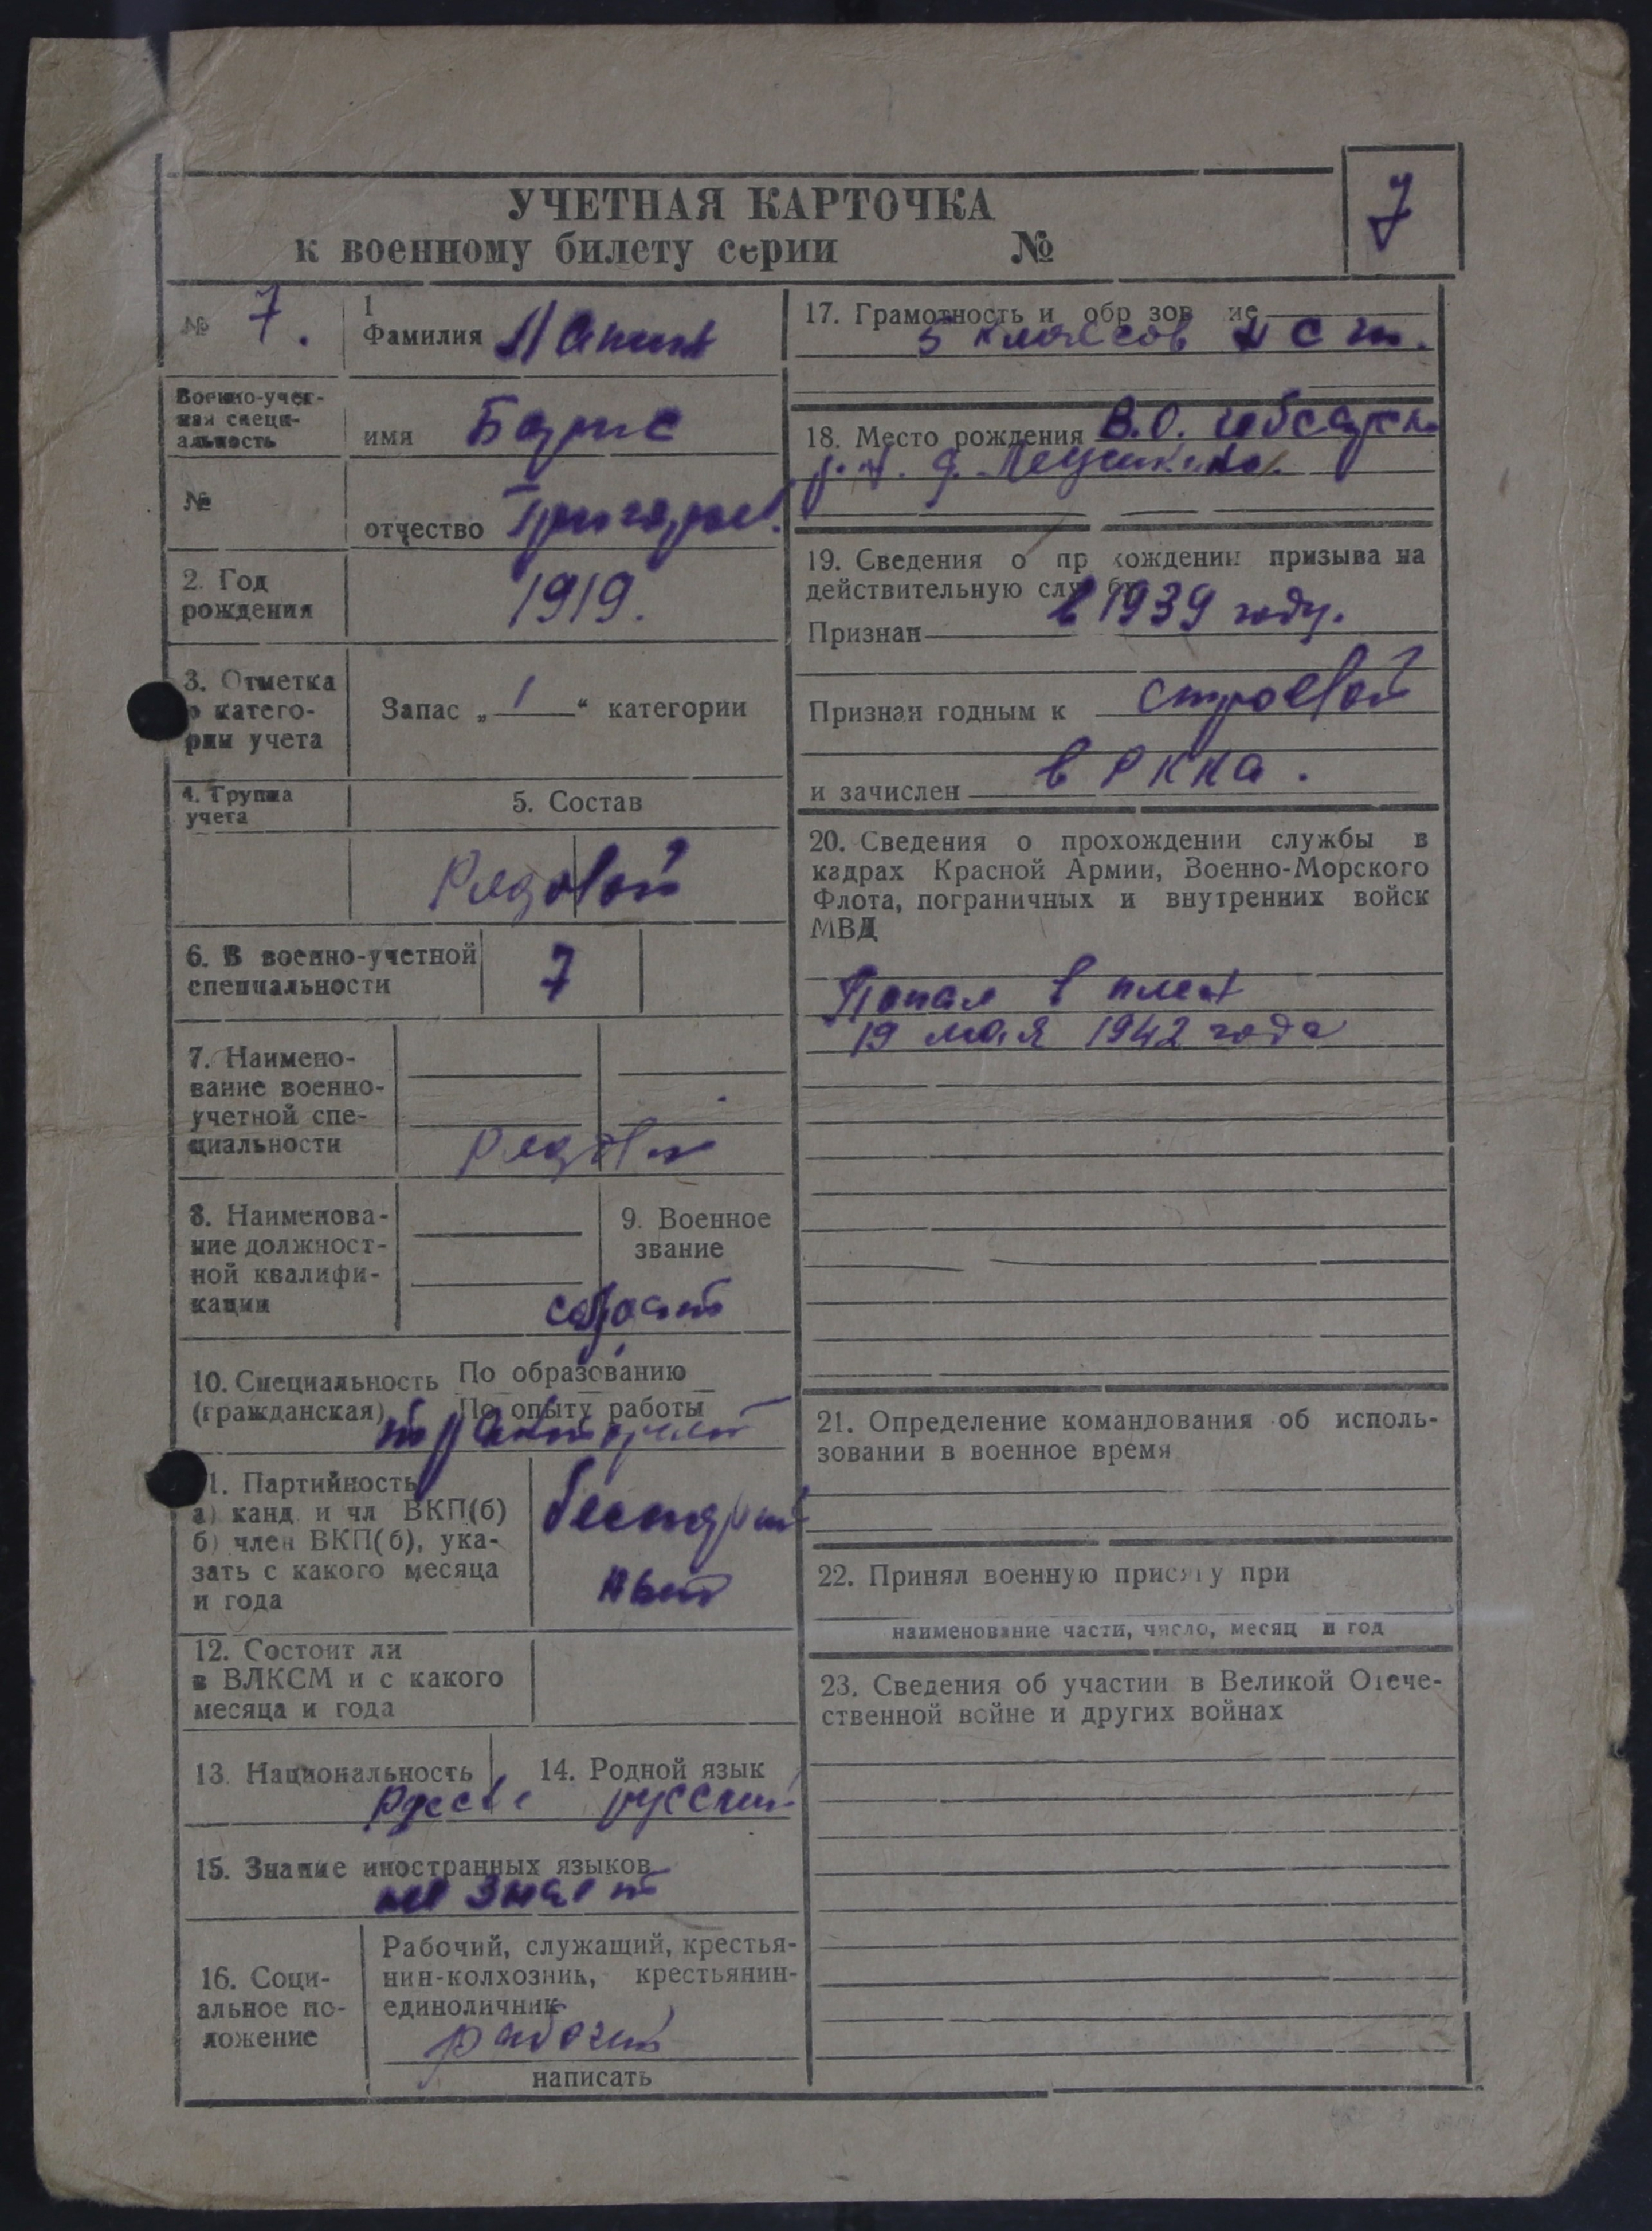 УЧЕТНАЯ КАРТОЧКА
к военному билету серии №
7
№ 7.
1
Фамилия
Военно-учет-
ная специ-
альность
№
имя Борис
отчество Григорьев.
2. Год
рождения
1919.
3. Отметка
о катего-
рии учета
Запас „ 1 “ категории
4. Группа
учета
5. Состав
Рядовой
6. В военно-учетной
специальности
7
7. Наимено-
вание военно-
учетной спе-
циальности
рядовой
8. Наименова-
ние должност-
ной квалифи-
кации
9. Военное
звание
солдат
10. Специальность По образованию
(гражданская) По опыту работы
тракторист
11. Партийность
а) канд. и чл ВКП(б)
б) член ВКП(б), ука-
зать с какого месяца
и года
беспартий
ный
12. Состоит ли
в ВЛКСМ и с какого
месяца и года
13. Национальность
14. Родной язык
русский
15. Знание иностранных языков
не знает
16. Соци-
альное по-
ложение
Рабочий, служащий, крестья-
нин-колхозник, крестьянин-
единоличник
рабочий
написать
17. Грамотность и обр зов ие
5 классов Н С Ш.
18. Место рождения В.О.
р-н. д.
19. Сведения о пр хождении призыва на
действительную слу бу
в 1939 году.
Признан
Признан годным к строевой
и зачислен в РККА.
20. Сведения о прохождении службы в
кадрах Красной Армии, Военно-Морского
Флота, пограничных и внутренних войск
МВД
Попал в плен
19 мая 1942 года
21. Определение командования об исполь-
зовании в военное время
22. Принял военную присягу при
наименование части, число, месяц и год
23. Сведения об участии в Великой Отече-
ственной войне и других войнах